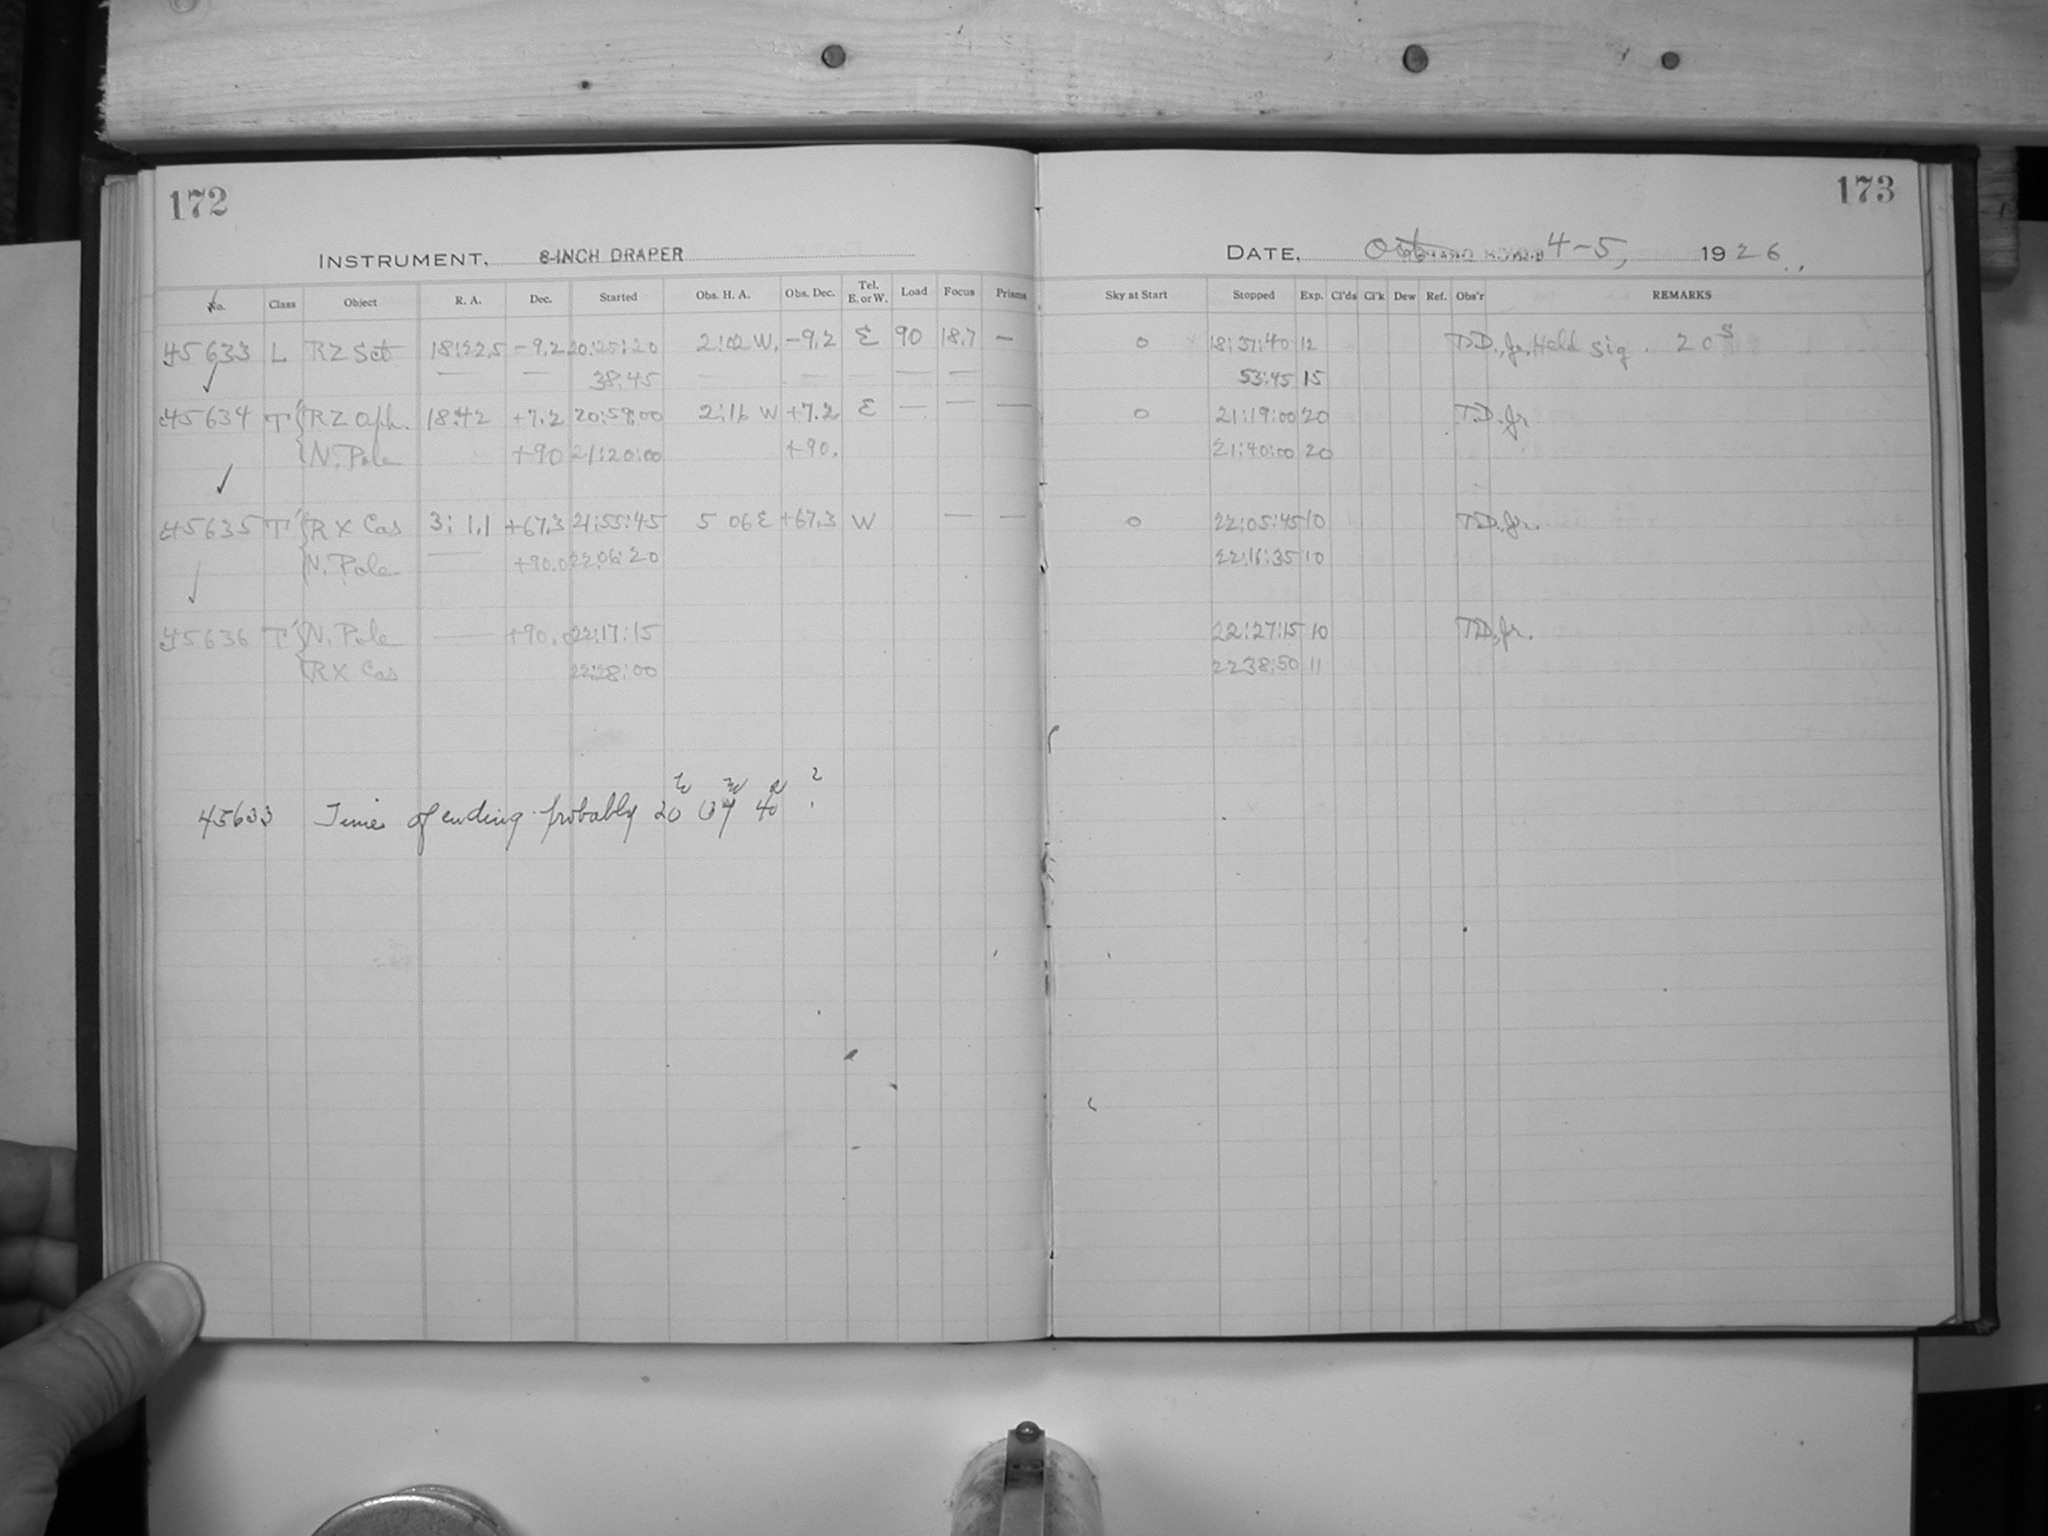 172
INSTRUMENT. 8-INCH DRAPER
No. Class Object R. A. Dec. Started Obs. H. A. Obs. Dec. Tel. E. or W. Load Focus Prisms
45633 L RZ Sct 18:22.5 -9.2 20:25:20 2:02 W. -9.2 E 90 18.7 —
— — 38:45 — — — —
45634 T' RZ Oph. 18:42 +7.2 20:59:00 2:16 W +7.2 E — — —
N. Pole +90 21:20:00 +90.
45635 T' RX Cas 3: 1.1 +67.3 21:55:45 5 06 E +67.3 W — —
N. Pole — +90.0 22:06:20
45636 T' N. Pole — +90.0 22:17:15
RX Cas 22:28:00
45633 Time of ending probably 20h 37m 40s ?
173
DATE. Oct 4-5, 1926.
Sky at Start Stopped Exp. Cl'ds Cl'k Dew Ref. Obs'r REMARKS
0 18:37:40 12 T.D., Jr. Held sig. 20s
53:45 15
0 21:19:00 20 T.D. Jr
21:40:00 20
0 22:05:45 10 T.D. Jr.
22:16:35 10
22:27:15 10 T.D. Jr.
22 38:50 11